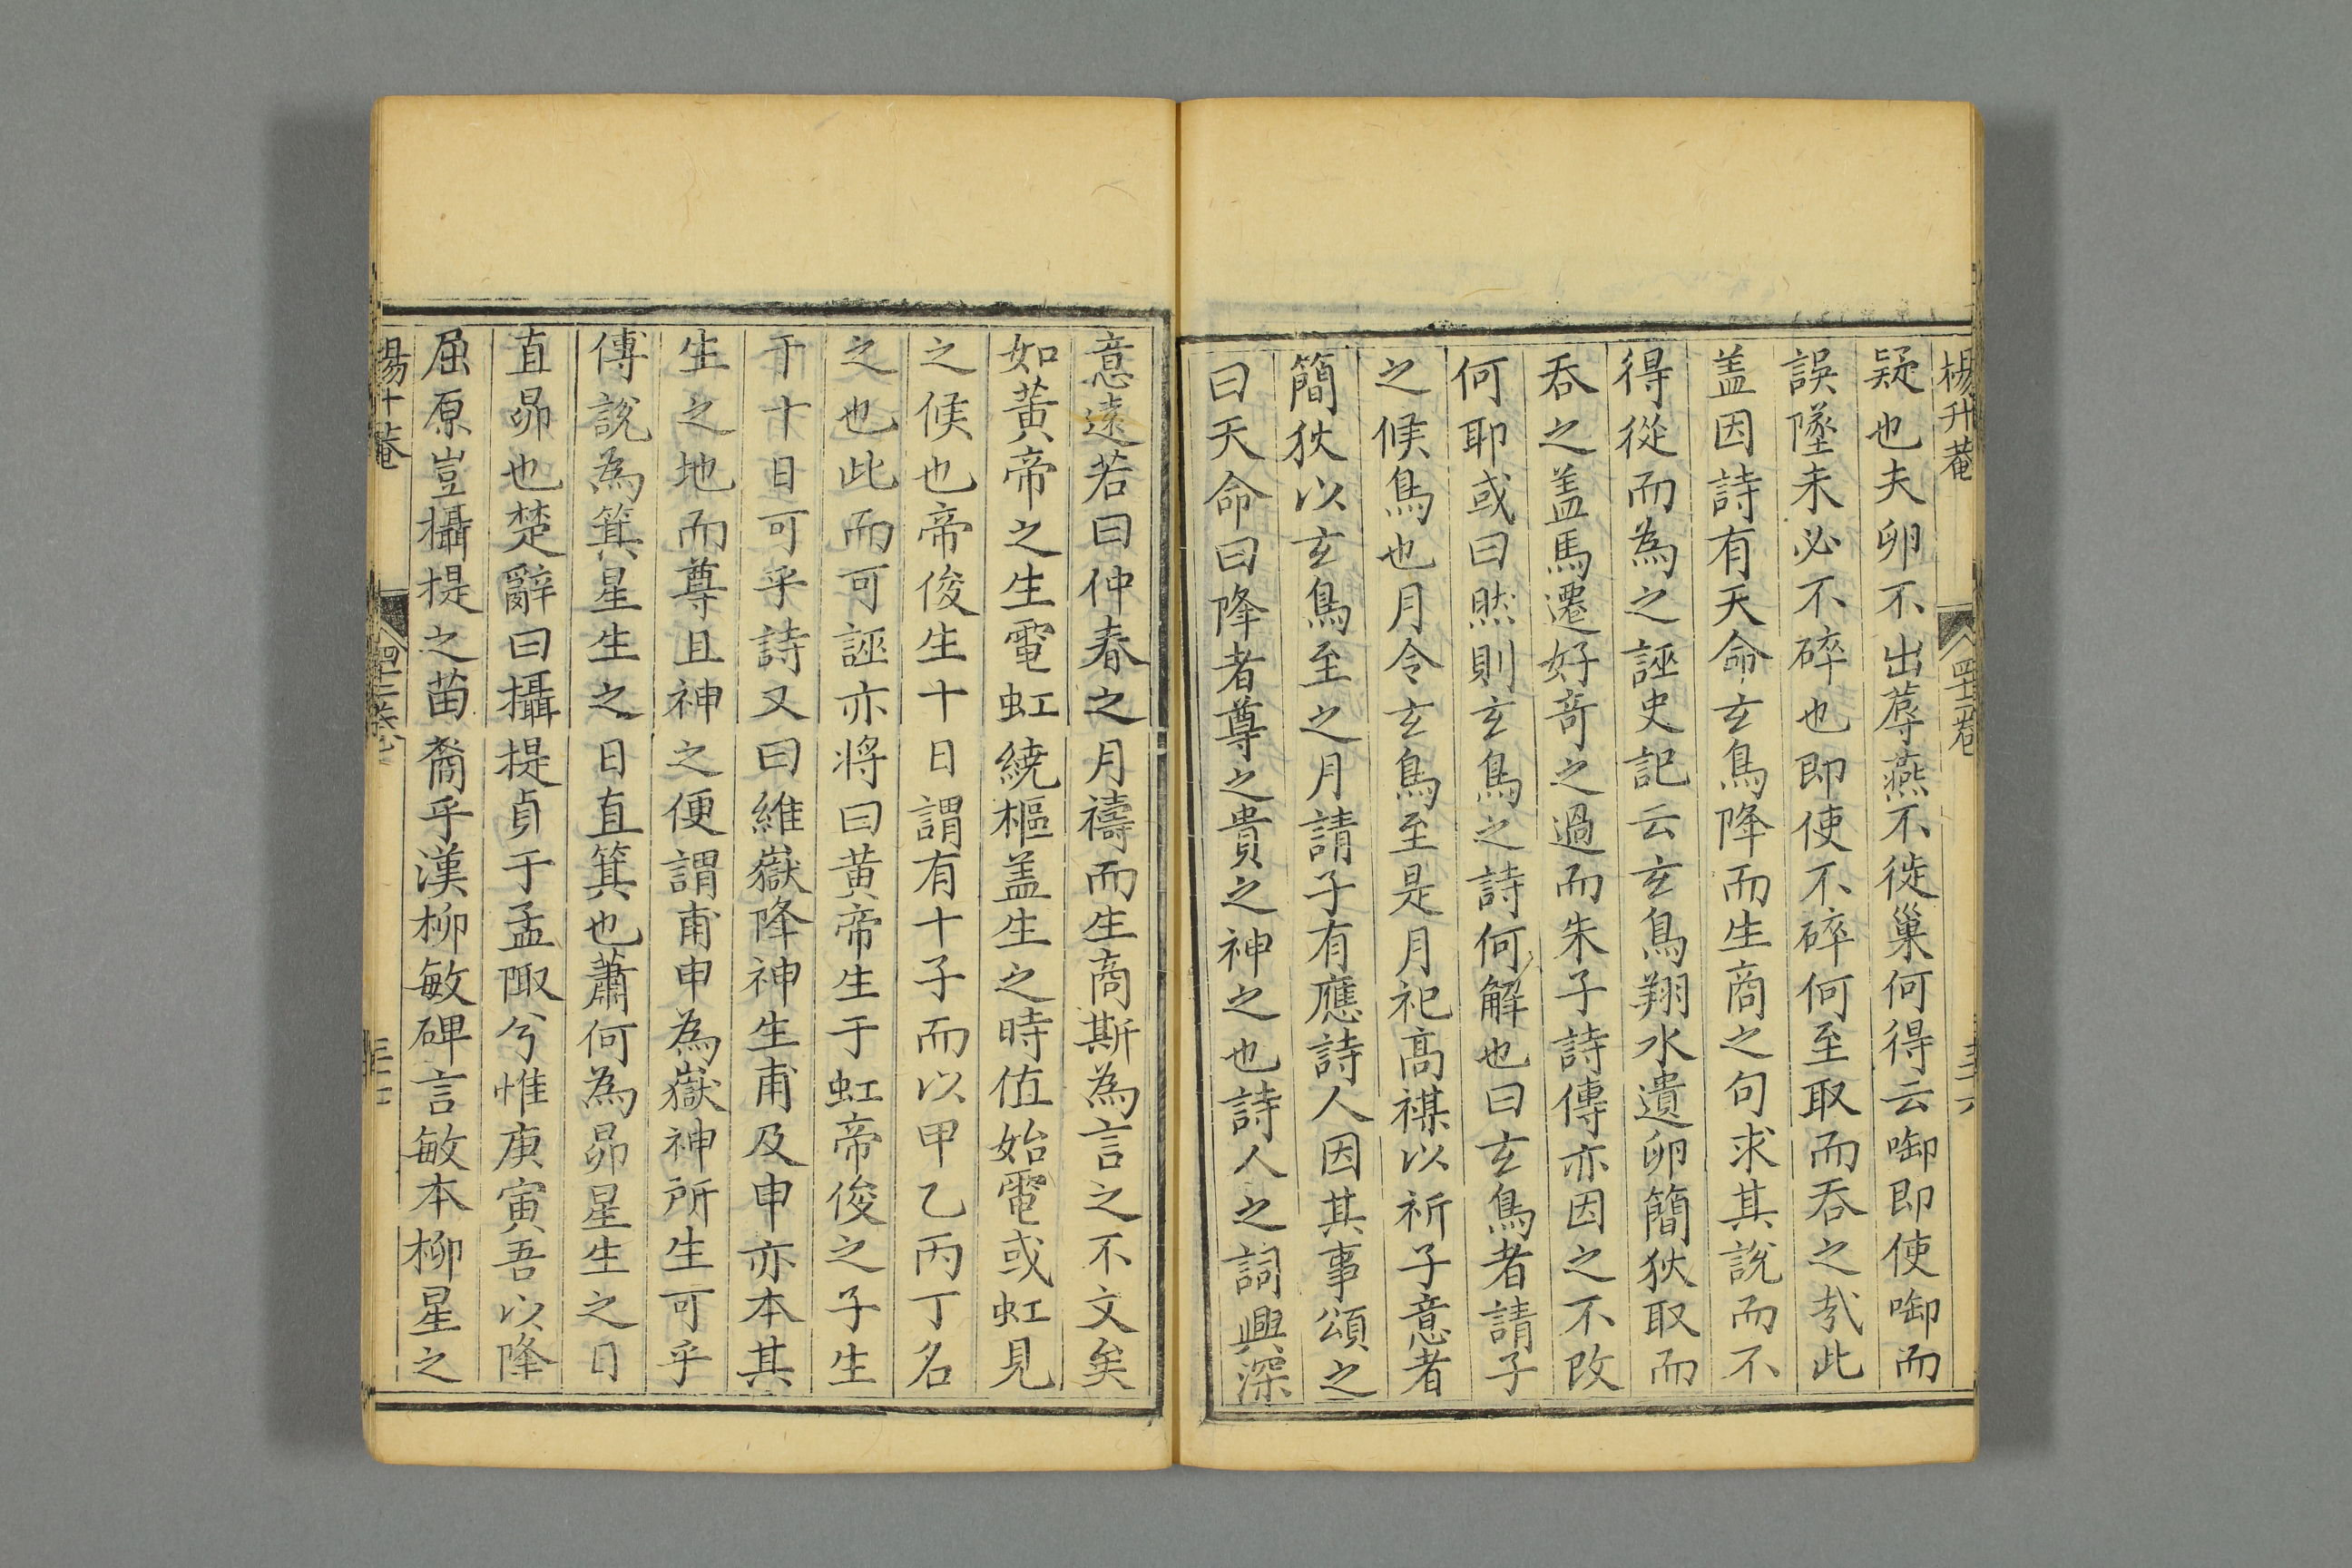 楊升菴 四十二卷 三十六
疑也夫卵不出蓐燕不徙巢何得云啣即使啣而
誤墜未必不碎也即使不碎何至取而吞之哉此
盖因詩有天命玄鳥降而生商之句求其說而不
得從而為之誣史記云玄鳥翔水遺卵簡狄取而
吞之盖馬遷好竒之過而朱子詩傳亦因之不改
何耶或曰然則玄鳥之詩何解也曰玄鳥者請子
之候鳥也月令玄鳥至是月祀高禖以祈子意者
簡狄以玄鳥至之月請子有應詩人因其事頌之
曰天命曰降者尊之貴之神之也詩人之詞興深
意遠若曰仲春之月禱而生商斯為言之不文矣
如黃帝之生電虹繞樞盖生之時值始電或虹見
之候也帝俊生十日謂有十子而以甲乙丙丁名
之也此而可誣亦將曰黄帝生于虹帝俊之子生
于十日可乎詩又曰維嶽降神生甫及申亦本其
生之地而尊且神之便謂甫申為嶽神所生可乎
傳說為箕星生之日直箕也蕭何為昴星生之日
直昴也楚辭曰攝提貞于孟陬兮惟庚寅吾以降
屈原豈攝提之苗裔乎漢柳敏碑言敏本柳星之